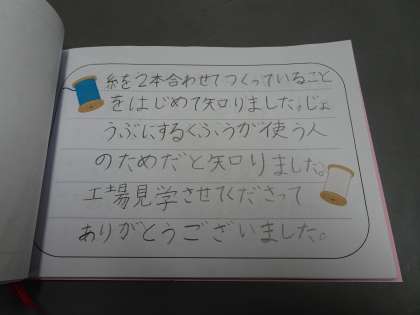 糸を2本合わせてつくっていること
をはじめて知りました。じょ
うぶにするくふうが使う人
のためだと知りました。
工場見学させてくださって
ありがとうございました。